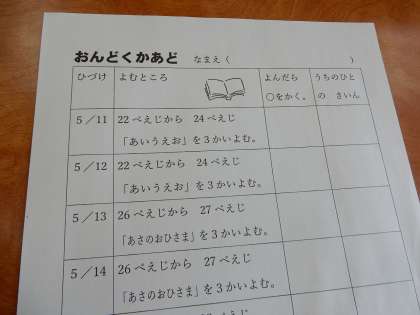 おんどくかあど　なまえ（　　　　）
ひづけ　よむところ　よんだら　うちのひと
〇をかく。　の　さいん
5／11　22ぺえじから　24ぺえじ
「あいうえお」を3かいよむ。
5／12　22ぺえじから　24ぺえじ
「あいうえお」を3かいよむ。
5／13　26ぺえじから　27ぺえじ
「あさのおひさま」を3かいよむ。
5／14　26ぺえじから　27ぺえじ
「あさのおひさま」を3かいよむ。